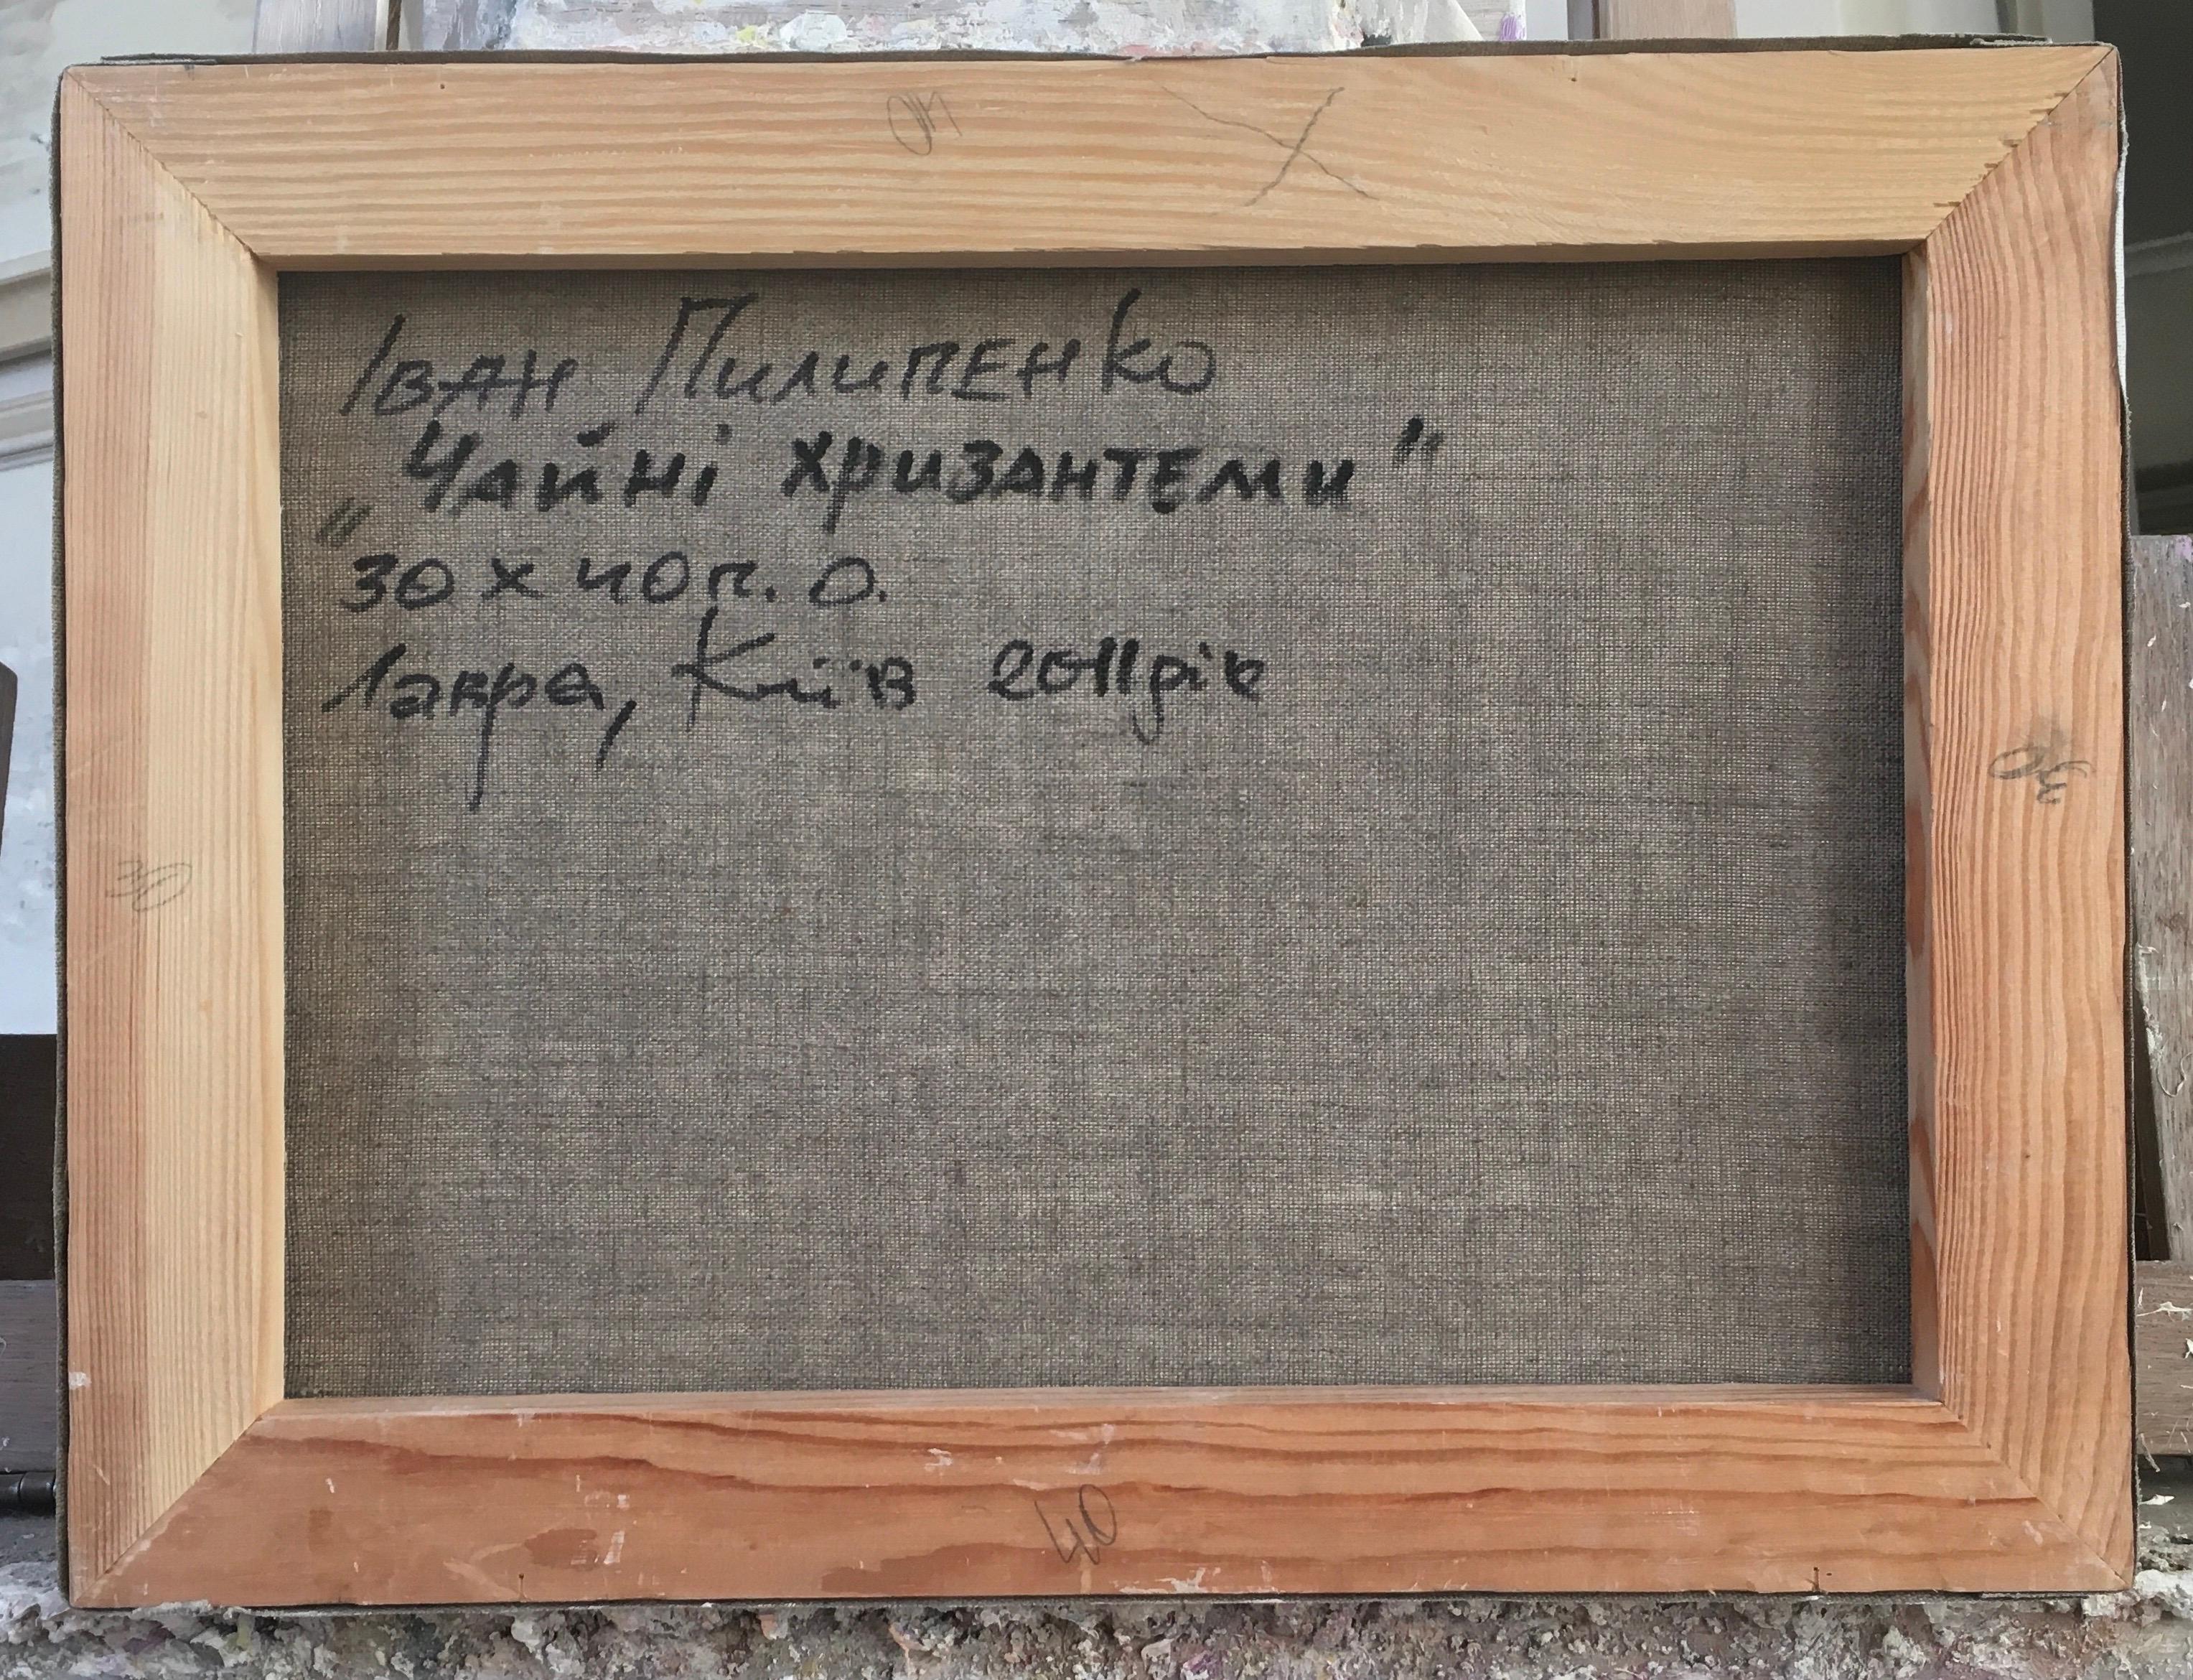 40
X
Іван Пилипенко
„Чайні хризантеми"
30 х 40 п. О.
Лавра, Київ 2011 рік
30
30
40